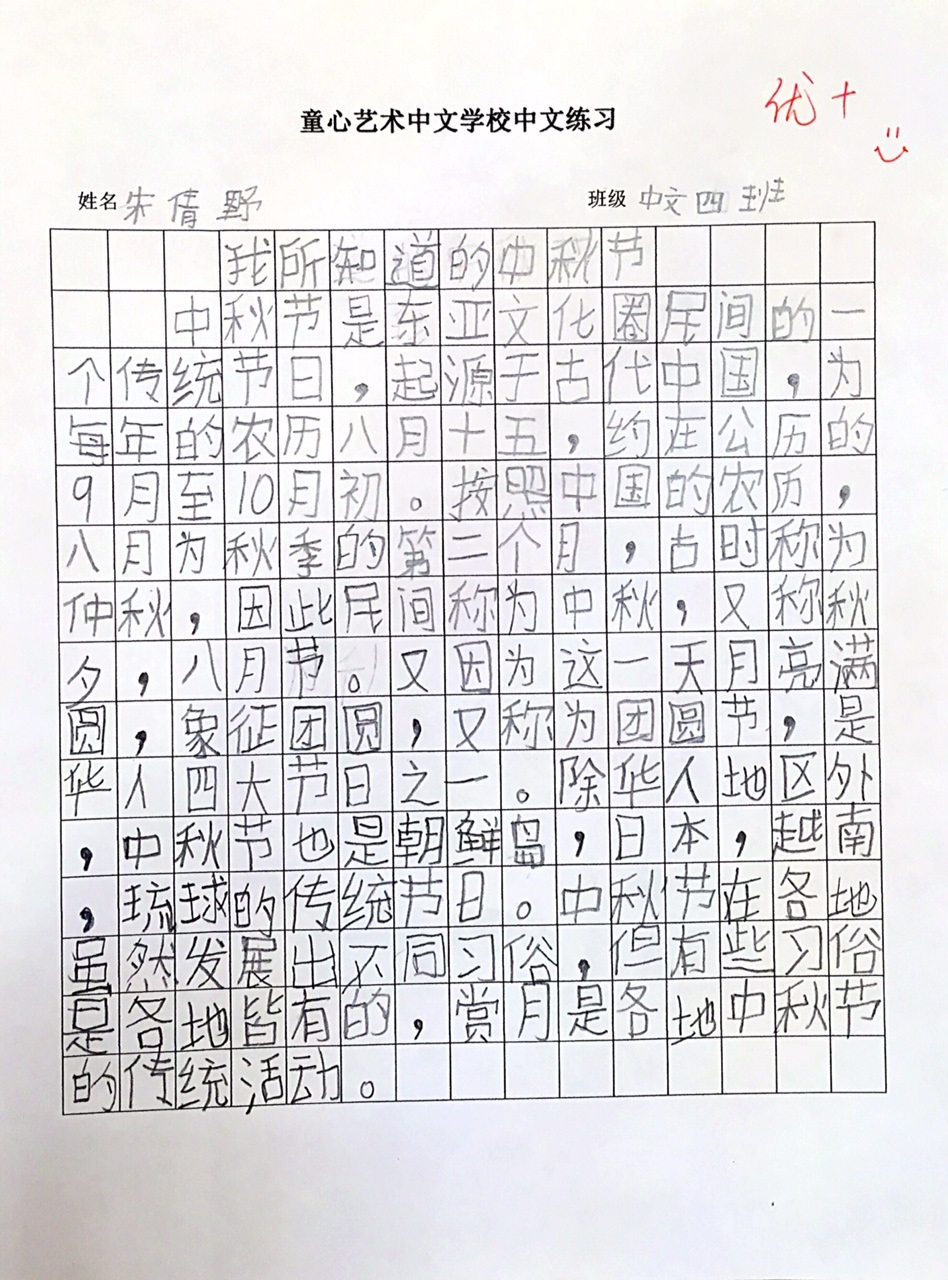 优+
童心艺术中文学校中文练习
姓名 朱倩野 班级 中文四班
我所知道的中秋节
中秋节是东亚文化圈民间的一
个传统节日，起源于古代中国，为
每年的农历八月十五，约在公历的
9月至10月初。按照中国的农历，
八月为秋季的第二个月，古时称为
仲秋，因此民间称为中秋，又称秋
夕，八月节。又因为这一天月亮满
圆，象征团圆，又称为团圆节，是
华人四大节日之一。除华人地区外
，中秋节也是朝鲜岛，日本，越南
，琉球的传统节日。中秋节在各地
虽然发展出不同习俗，但有些习俗
是各地皆有的，赏月是各地中秋节
的传统活动。